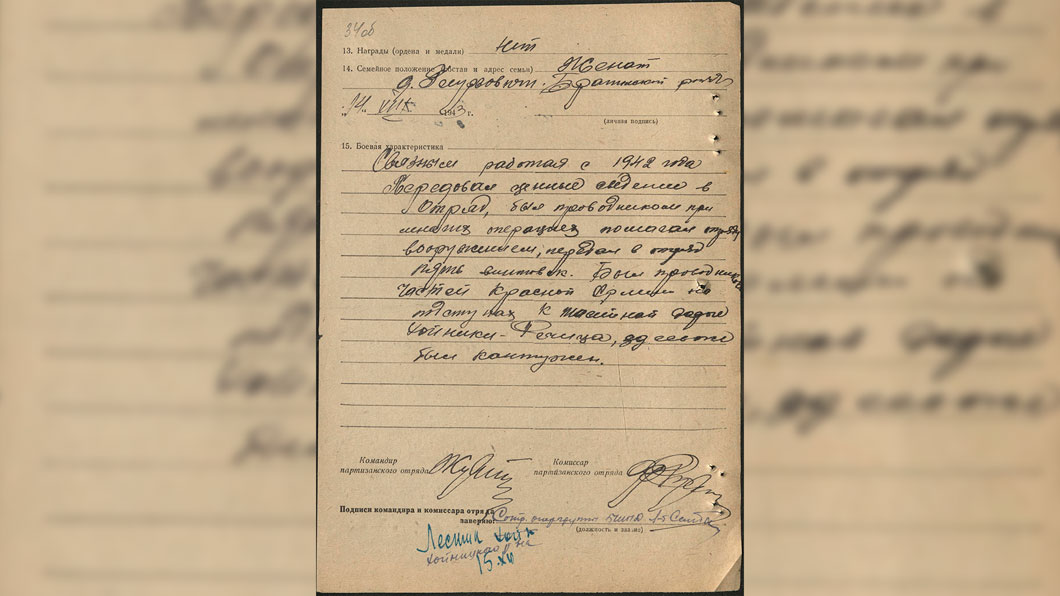 34об
13. Награды (ордена и медали) нет
14. Семейное положение (состав и адрес семьи) Женат
д. Брагинский
"14" VIII 1943 г.
(личная подпись)
15. Боевая характеристика
Связным работал с 1942 года
Передовал ценные сведения в
отряд, был проводником при
многих операциях помогал отряду
вооружением, передал в отряд
пять винтовок. Был проводником
частей Красной Армии на
подступах к
Хойники - Речица, где
был контужен.
Командир
партизанского отряда
Комиссар
партизанского отряда
Подписи командира и комиссара отряда
заверяю: Сотр. опергруппы БШПД
(должность и звание)
15.XII